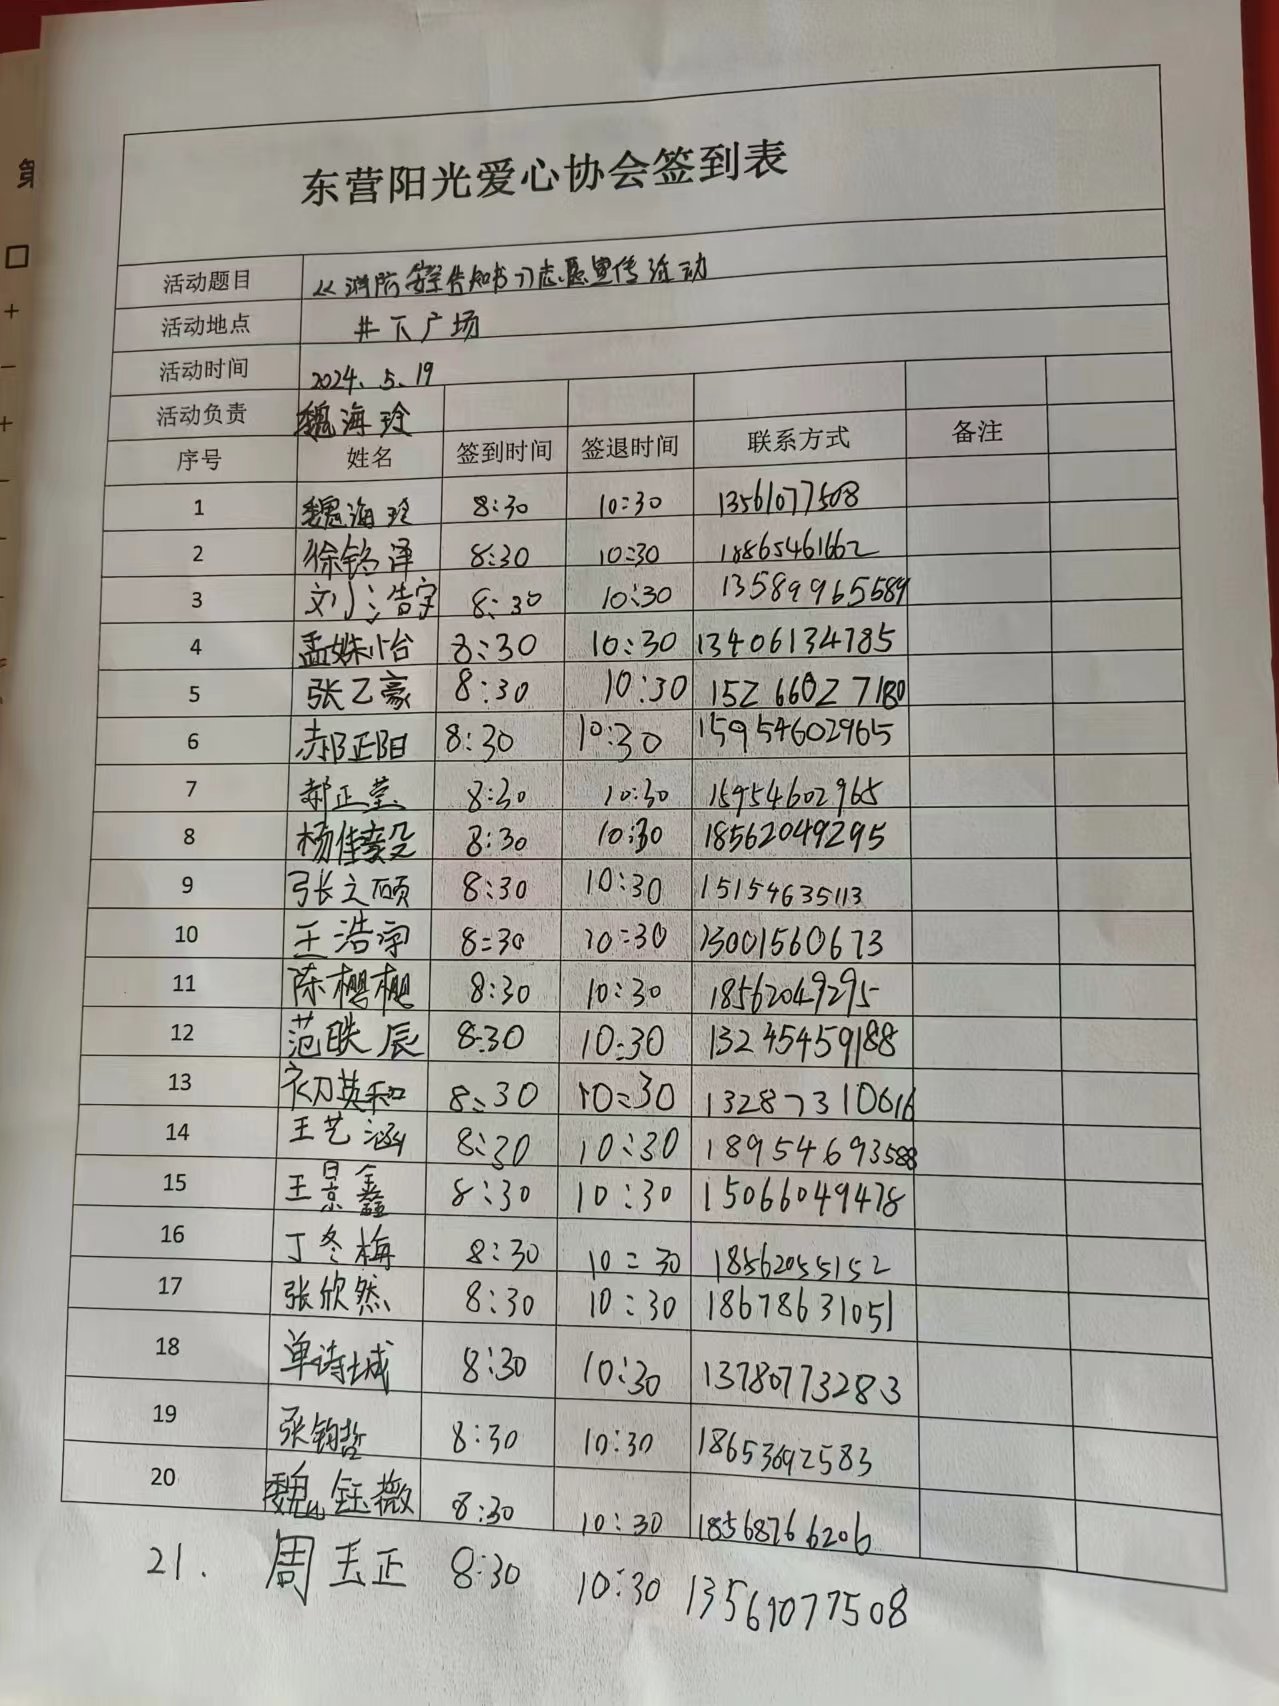 第
东营阳光爱心协会签到表
活动题目 《消防安全告知书》志愿宣传活动
活动地点 井下广场
活动时间 2024.5.19
活动负责 魏海玲
序号 姓名 签到时间 签退时间 联系方式 备注
1 魏海玲 8:30 10:30 13561077508
2 徐铭泽 8:30 10:30 18865461662
3 刘浩宇 8:30 10:30 13589965589
4 孟姝怡 8:30 10:30 13406134785
5 张乙豪 8:30 10:30 15266027180
6 郝正阳 8:30 10:30 15954602965
7 郝正莹 8:30 10:30 15954602965
8 杨佳毅 8:30 10:30 18562049295
9 张文硕 8:30 10:30 15154635113
10 王浩宇 8:30 10:30 13001560673
11 陈樱樱 8:30 10:30 18562049295
12 范轶辰 8:30 10:30 13245459188
13 初英和 8:30 10:30 13287310616
14 王艺涵 8:30 10:30 18954693588
15 王景鑫 8:30 10:30 15066049478
16 丁冬梅 8:30 10:30 18562055152
17 张欣然 8:30 10:30 18678631051
18 单诗城 8:30 10:30 13780773283
19 张钧哲 8:30 10:30 18653692583
20 魏钰薇 8:30 10:30 18568766206
21. 周玉正 8:30 10:30 13561077508